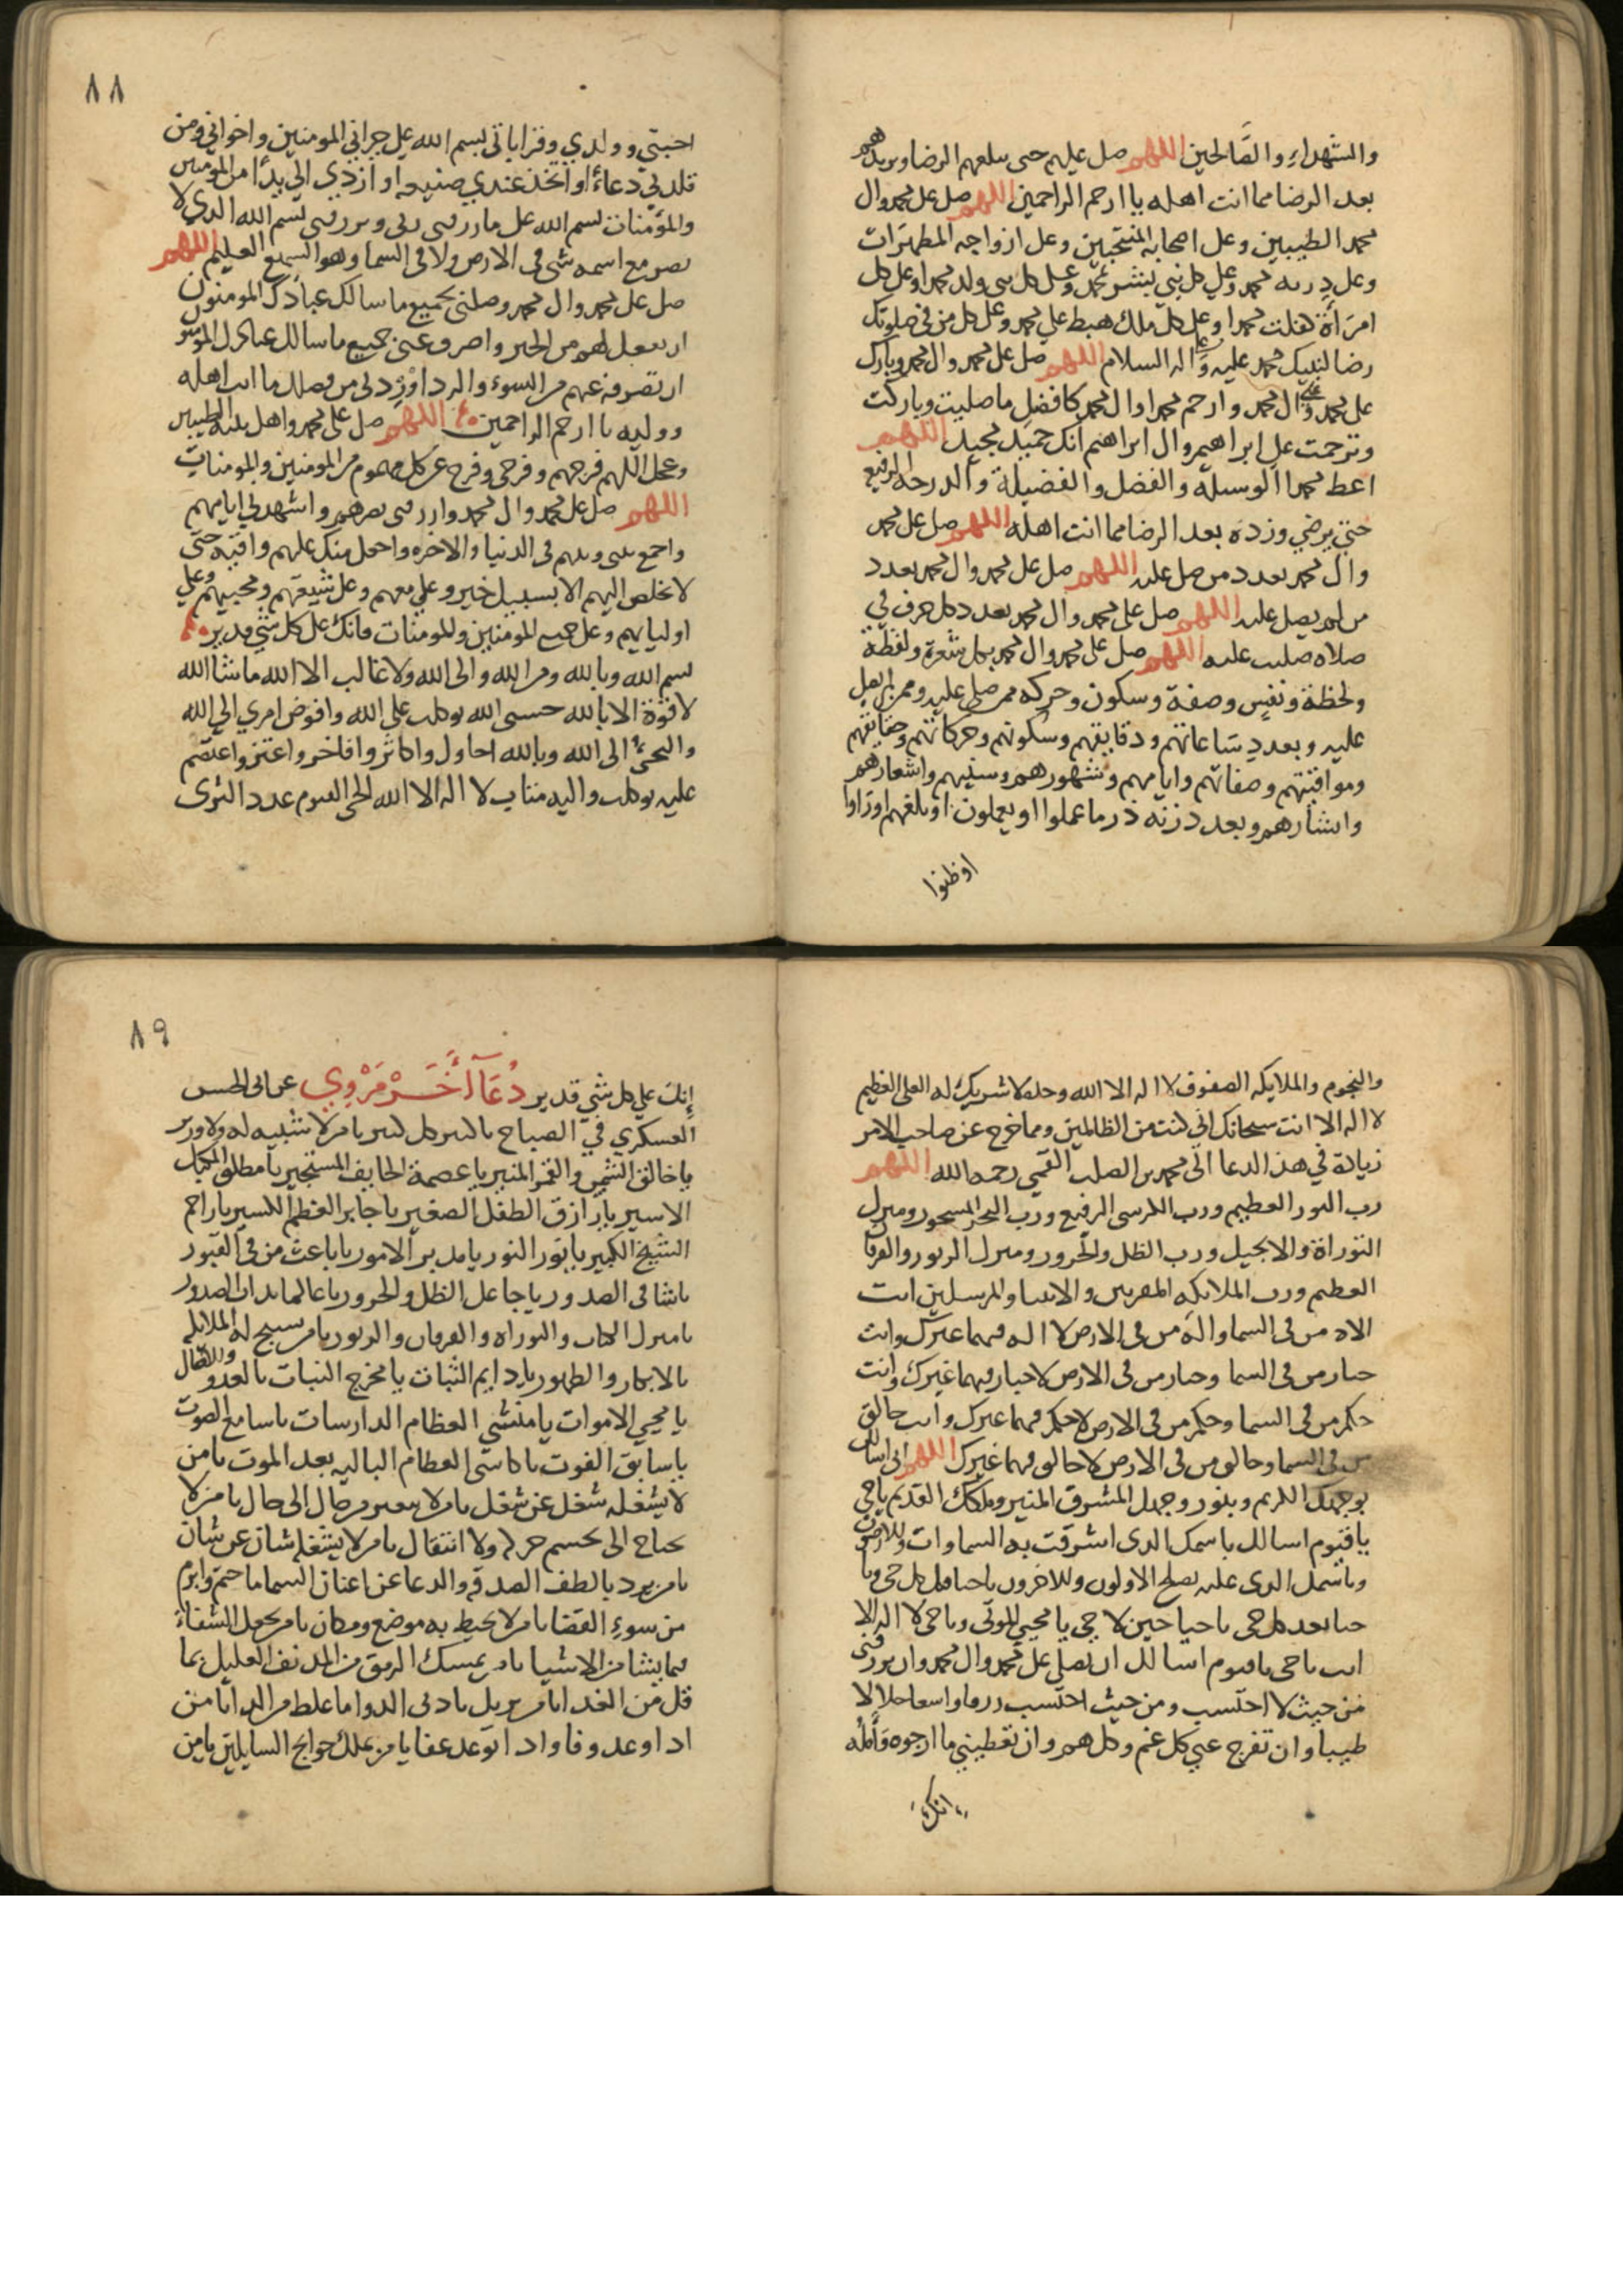 والشهداء والصالحين اللهم صل عليهم حتى تبلغهم الرضا وتزيدهم
بعد الرضا مما انت اهله يا ارحم الراحمين اللهم صل على محمد وال
محمد الطيبين وعلى اصحابه المنتجبين وعلى ازواجه المطهرات
وعلى ذريه محمد وعلى كل نبي بشر بمحمد وعلى كل نبي ولد محمدا وعلى كل
امرأة كفلت محمدا وعلى كل ملك هبط على محمد وعلى كل من في صلوتك
رضا لنبيك محمد عليه وعلى اله السلام اللهم صل على محمد وال محمد وبارك
على محمد وعلى ال محمد وارحم محمدا وال محمد كافضل ما صليت وباركت
وترحمت على ابراهيم وال ابراهيم انك حميد مجيد اللهم
اعط محمدا الوسيله والفضل والفضيلة والدرجه الرفيع
حتى يرضي وزده بعد الرضا مما انت اهله اللهم صل على محمد
وال محمد بعدد من صل عليه اللهم صل على محمد وال محمد بعدد
من لم يصل عليه اللهم صل على محمد وال محمد بعدد كل حرف في
صلاه صليت عليه اللهم صل على محمد وال محمد بكل شعرة ولفظة
ولحظة ونفس وصفة وسكون وحركه ممن صلى عليه وممن لم يصل
عليه وبعدد ساعاتهم ودقايقهم وسكونهم وحركاتهم وحقايقهم
ومواقيتهم وصفاتهم وايامهم وشهورهم وسنيهم واشعارهم
وابشارهم وبعدد زنه ذر ما عملوا او يعملون او بلغهم او راوا
او ظنوا
٨٨
احبتي وولدي وقراباتي بسم الله على جيراني المومنين واخواني ومن
قلدني دعاء او اتخذ عندي صنيعه او ازدى الي يدا من المومنين
والمؤمنات بسم الله على ما رزقني ربي ويرزقني بسم الله الذي لا
يضر مع اسمه شى في الارض ولا في السما وهو السميع العليم اللهم
صل على محمد وال محمد وصلني بجميع ما سالك عبادك المومنون
ان تصلهم من الخير واصرف عني جميع ما سالك عبادك المومنون
ان تصرفه عنهم من السوء والردا وزدني من فضلك ما انت اهله
ووليه يا ارحم الراحمين اللهم صل على محمد واهل بيته الطيبين
وعجل اللهم فرجهم وفرجي وفرج عن كل مهموم من المومنين والمومنات
اللهم صل على محمد وال محمد وارزقني نصرهم واشهدني ايامهم
واجمع بيني وبينهم في الدنيا والاخره واجعل منك عليهم واقيه حتى
لا يخلص اليهم الا بسبيل خير وعلي معهم وعلى شيعتهم ومحبيهم وعلى
اوليايهم وعلى جميع المومنين والمومنات فانك على كل شي قدير
بسم الله وبالله ومن الله والى الله ولا غالب الا الله ما شا الله
لا قوة الا بالله حسبى الله توكلت على الله وافوض امري الي الله
والتجئ الى الله وبالله احاول واكاثر وافاخر واعتز واعتصم
عليه توكلت واليه متاب لا اله الا الله الحي القيوم عدد الثرى
والنجوم والملايكه الصفوف لا اله الا الله وحده لا شريك له العلى العظيم
لا اله الا انت سبحانك اني كنت من الظالمين ومما خرج عن صاحب الامر
زيادة في هذ الدعا الى محمد بن الصلت القمي رحمه الله اللهم
رب النور العظيم ورب الكرسى الرفيع ورب البحر المسجور ومنزل
التوراة والانجيل ورب الظل والحرور ومنزل الزبور والفرقان
العظيم ورب الملائكه المقربين والانبيا والمرسلين انت
الاه من في السما واله من في الارض لا اله فيهما غيرك وانت
جبار من في السما وجبار من في الارض لا جبار فيهما غيرك وانت
حكم من في السما وحكم من في الارض لا حكم فيهما غيرك وانت خالق
من في السما وخالق من في الارض لا خالق فيهما غيرك اللهم انى اسالك
بوجهك الكريم وبنور وجهك المشرق المنير وملكك القديم يا حي
يا قيوم اسالك باسمك الذي اشرقت به السماوات والارضون
وباسمك الذي عليه يصلح الاولون والاخرون يا حيا قبل كل حى ويا
حيا بعد كل حى يا حيا حين لا حي يا محيي الموتى ويا حى لا اله الا
انت يا حى يا قيوم اسالك ان تصلى على محمد وال محمد وان ترزقنى
من حيث لا احتسب ومن حيث احتسب رزقا واسعا حلالا
طيبا وان تفرج عني كل غم وكل هم وان تعطيني ما ارجوه وآمله
انك
٨٩
إنك على كل شي قدير دعآ أخر مروي عن ابى الحسن
العسكري في الصباح يا كبير كل كبير يا من لا شبيه له ولا وزير
يا خالق الشمس والقمر المنير يا عصمة الخايف المستجير يا مطلق المكبل
الاسير يا رازق الطفل الصغير يا جابر العظم الكسير يا راحم
الشيخ الكبير يا نور النور يا مدبر الامور يا باعث من في القبور
يا شافى الصدور يا جاعل الظل والحرور يا عالما بذات الصدور
يا منزل الكتاب والتوراه والفرقان والزبور يا من تسبح له الملايكه
بالابكار والظهور يا دايم الثبات يا مخرج النبات بالغدو والاصال
يا محيي الاموات يا منشي العظام الدارسات يا سامع الصوت
يا سابق الفوت يا كاسى العظام الباليه بعد الموت يا من
لا يشغله شغل عن شغل يا من لا يتغير من حال الى حال يا من لا
يحتاج الى تجسم حركه ولا انتقال يا من لا يشغله شان عن شان
يا من يرد بالطف الصدقه والدعا عن اعنان السما ما حتم وابرم
من سوء القضا يا من لا يحيط به موضع ومكان يا من يجعل الشفاء
فيما يشا من الاشيا يا من يمسك الرمق من المدنف العليل بما
قل من الغدا يا من يزيل بادنى الدوا ما غلظ من الدا يا من
اذا وعد وفا واذا توعد عفا يا من يملك حوايج السايلين يا من